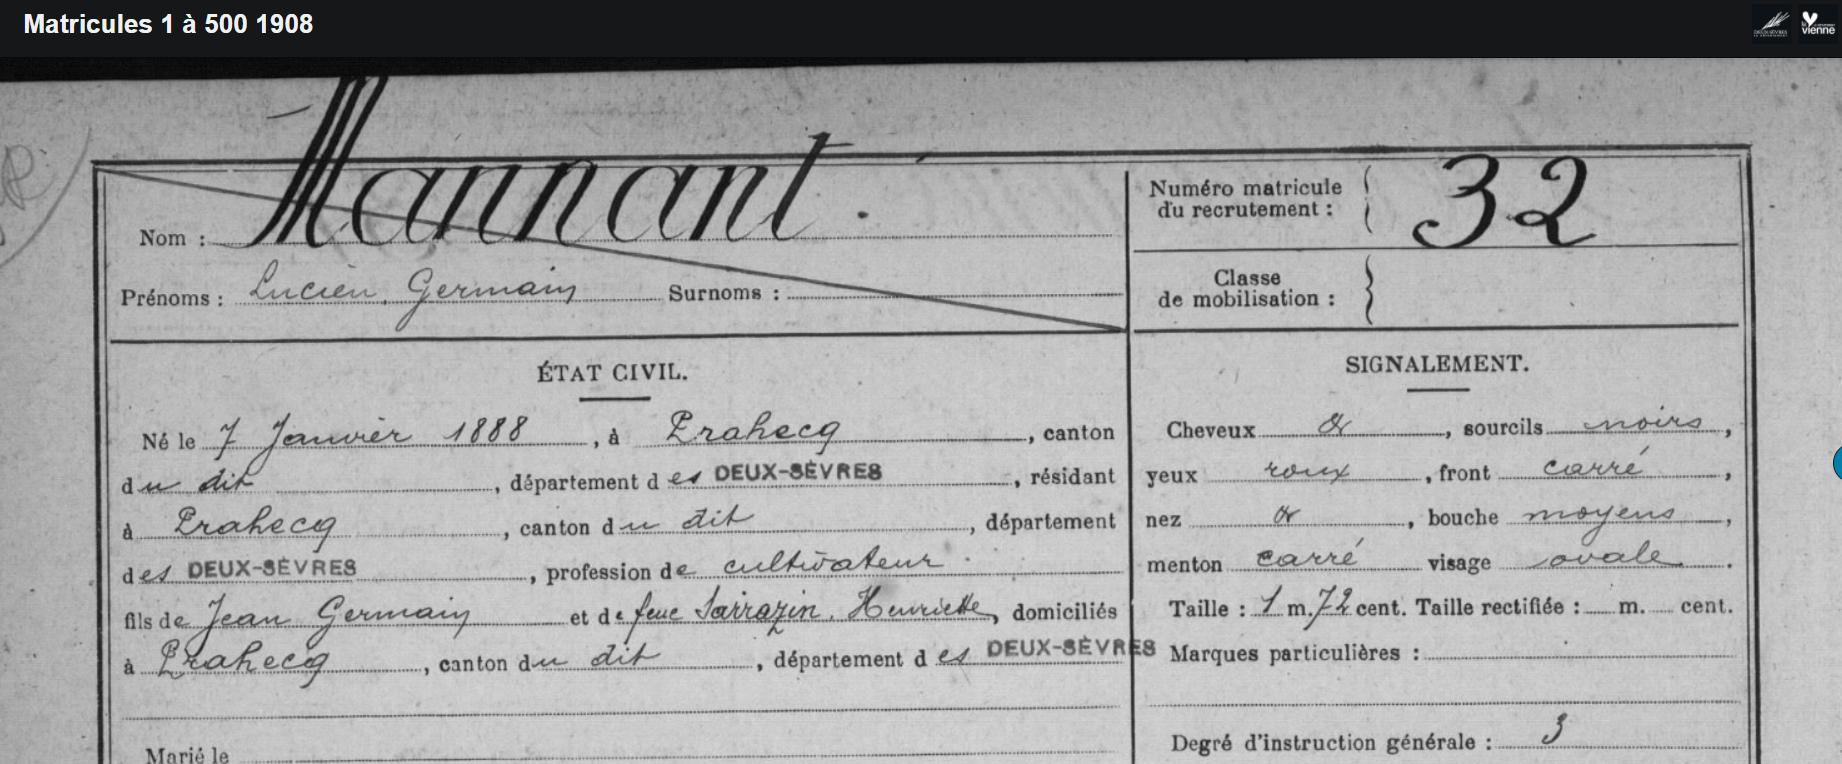 Matricules 1 à 500 1908
DEUX-SÈVRES
vienne
Nom : Mannant.
Numéro matricule du recrutement : 32
Prénoms : Lucien, Germain Surnoms :
Classe de mobilisation :
ÉTAT CIVIL.
SIGNALEMENT.
Né le 7 Janvier 1888, à Prahecq, canton
du dit, département des DEUX-SÈVRES, résidant
à Prahecq, canton du dit, département
des DEUX-SÈVRES, profession de cultivateur
fils de Jean Germain et de feue Sarrazin, Henriette, domiciliés
à Prahecq, canton du dit, département des DEUX-SÈVRES
Marié le
Cheveux &, sourcils noirs,
yeux roux, front carré,
nez &, bouche moyens,
menton carré visage ovale.
Taille : 1 m. 72 cent. Taille rectifiée : m. cent.
Marques particulières :
Degré d'instruction générale : 3